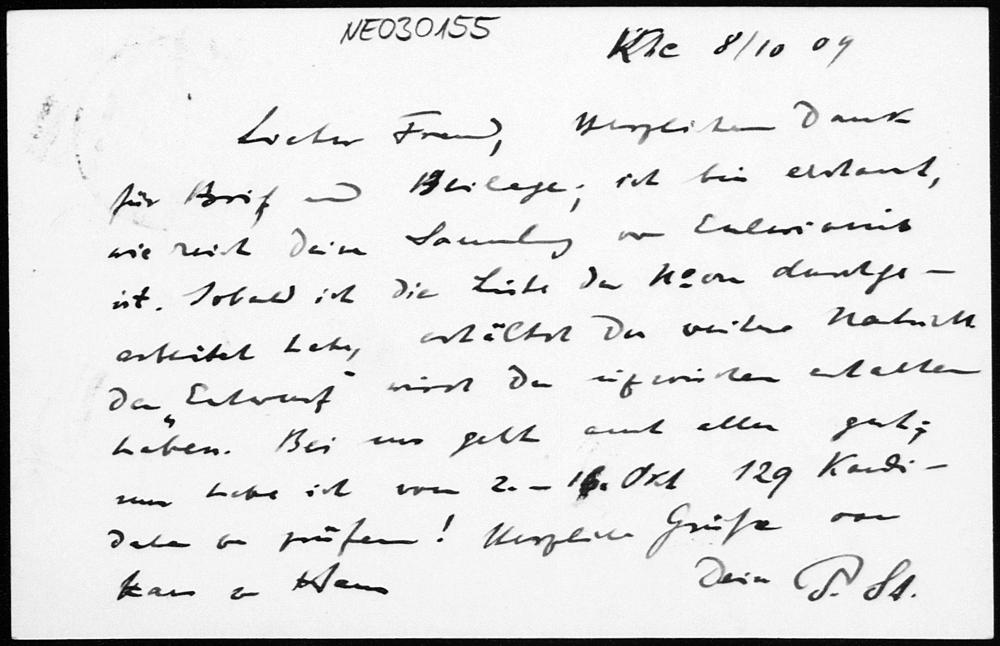 NE030155
Khe 8/10 09
Lieber Freund, Herzlichen Dank
für Brief und Beilage; ich bin erstaunt,
wie reich Deine Sammlung von
ist. Sobald ich die Liste der No von durchge-
arbeitet habe, erhältst Du weitere Nachricht
Den „Entwurf" wirst Du inzwischen erhalten
haben. Bei uns geht auch alles gut;
nur habe ich vom 2.-16. Okt 129 Kandi-
daten zu prüfen! Herzliche Grüße von
Haus zu Haus Dein P. St.